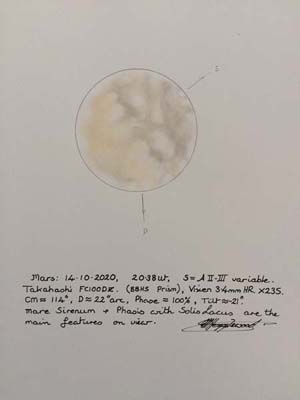 S
P
Mars: 14-10-2020, 20:38ut, S=AII-III variable.
Takahashi FC100DZ. (BBHS Prism), Vixen 3·4mm HR X235.
Cm≈ 114°, D≈22"arc, Phase≈100%, Tilt≈-21°.
mare Sirenum + Phasis with Solis Lacus are the
main features on view.